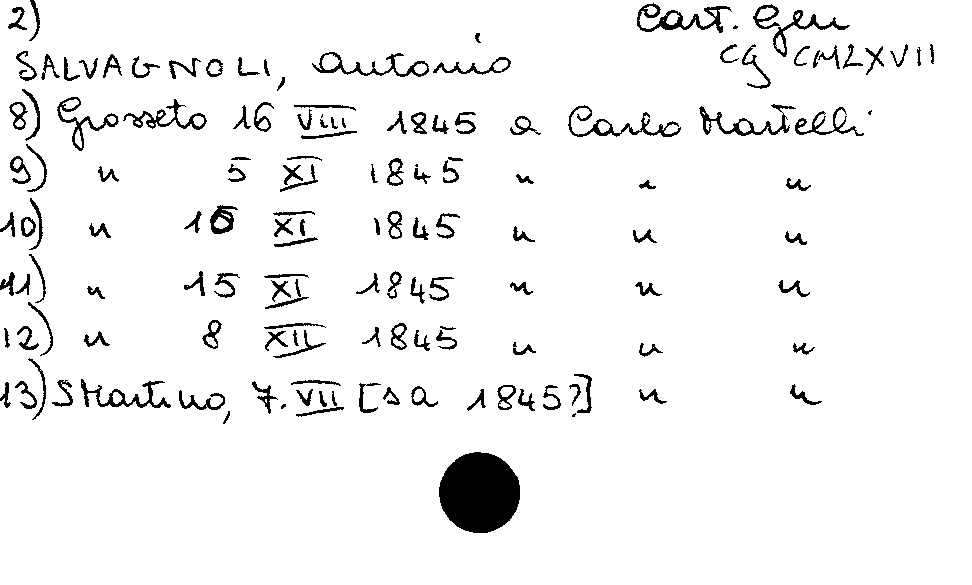 2) Cart. Gen
SALVAGNOLI, Antonio CG CMLXVII
8) Grosseto 16 VIII 1845 a Carlo Martelli
9) " 5 XI 1845 " " "
10) " 10 XI 1845 " " "
11) " 15 XI 1845 " " "
12) " 8 XII 1845 " " "
13) S Martino, 7. VII [s a 1845?] " "